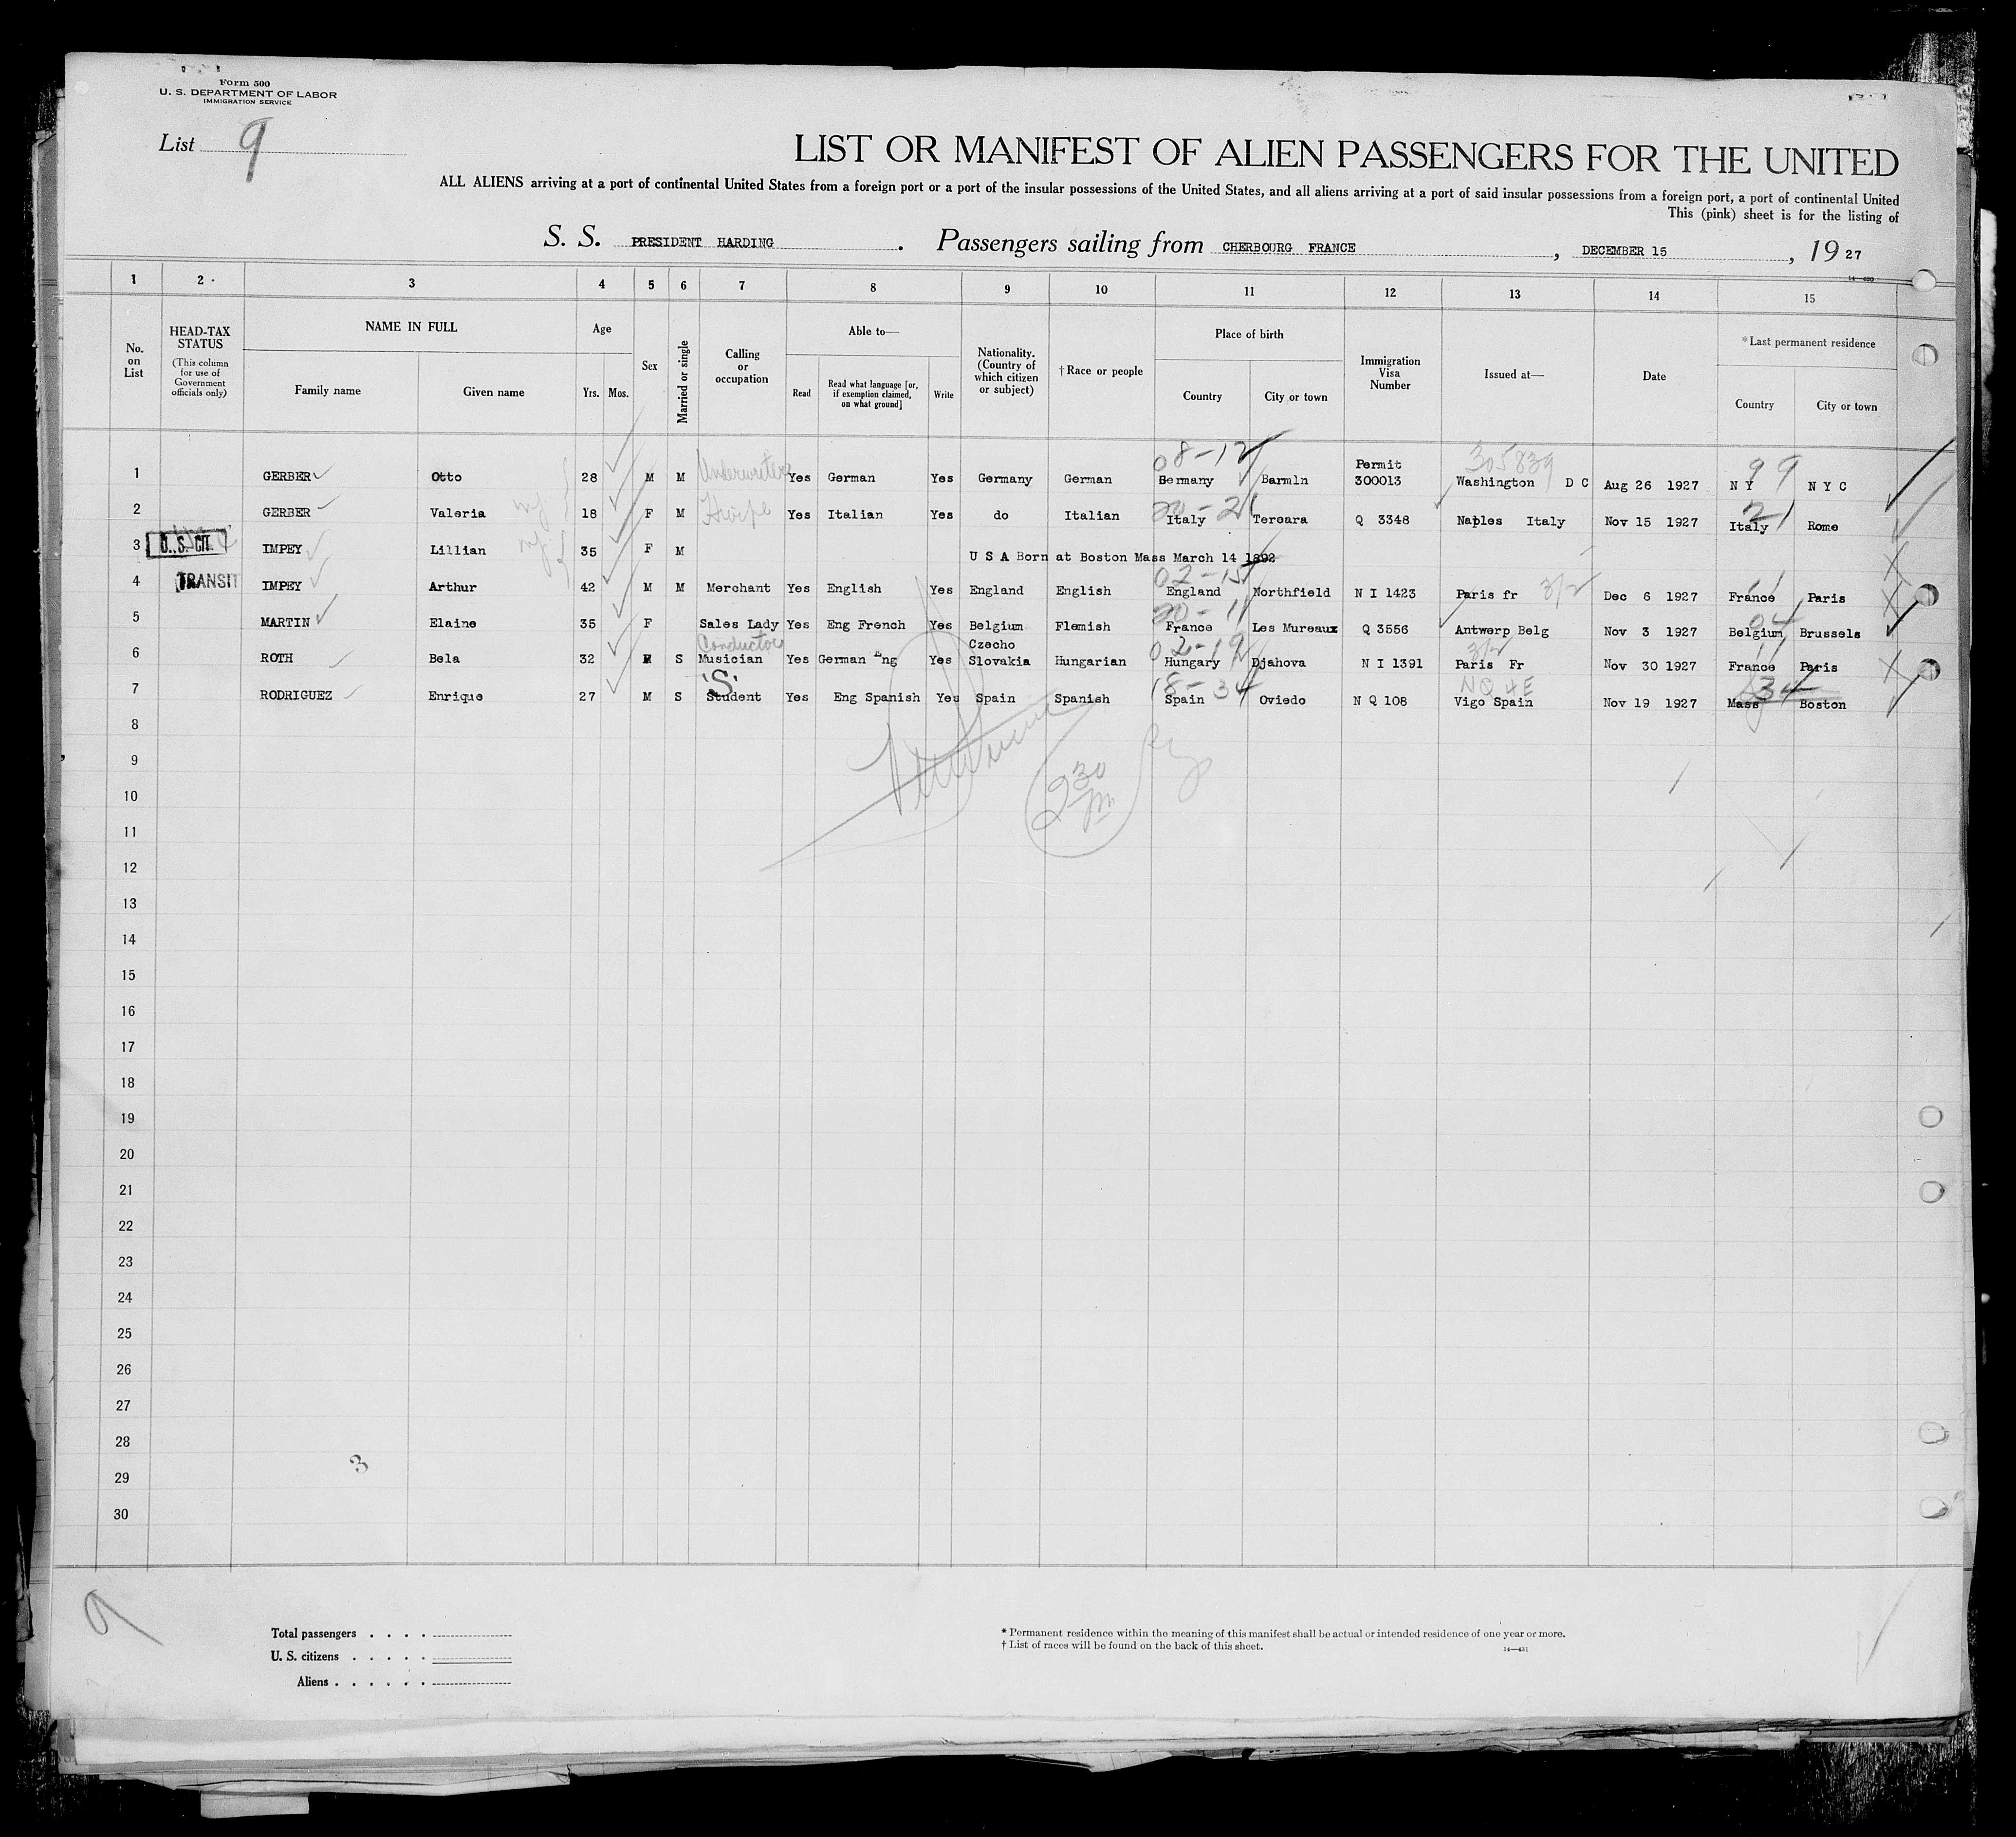 Form 500
U. S. DEPARTMENT OF LABOR
IMMIGRATION SERVICE
List 9
LIST OR MANIFEST OF ALIEN PASSENGERS FOR THE UNITED
ALL ALIENS arriving at a port of continental United States from a foreign port or a port of the insular possessions of the United States, and all aliens arriving at a port of said insular possessions from a foreign port, a port of continental United
This (pink) sheet is for the listing of
S. S. PRESIDENT HARDING . Passengers sailing from CHERBOURG FRANCE , DECEMBER 15 , 19 27
14-430
1 2 3 4 5 6 7 8 9 10 11 12 13 14 15
No. on List
HEAD-TAX STATUS
(This column for use of Government officials only)
NAME IN FULL
Family name Given name
Age
Yrs. Mos.
Sex
Married or single
Calling or occupation
Able to—
Read
Read what language [or, if exemption claimed, on what ground]
Write
Nationality. (Country of which citizen or subject)
† Race or people
Place of birth
Country City or town
Immigration Visa Number
Issued at—
Date
* Last permanent residence
Country City or town
08-12 305839 99
1 GERBER Otto 28 M M Underwriter Yes German Yes Germany German Germany Barmln Permit 300013 Washington D C Aug 26 1927 N Y N Y C
2 GERBER Valeria 18 F M Yes Italian Yes do Italian Italy Tereara Q 3348 Naples Italy Nov 15 1927 Italy 21 Rome
3 U. S. CIT. IMPEY Lillian 35 F M U S A Born at Boston Mass March 14 1892
02-15
4 TRANSIT IMPEY Arthur 42 M M Merchant Yes English Yes England English England Northfield N I 1423 Paris fr 3/2 Dec 6 1927 France 11 Paris
04
5 MARTIN Elaine 35 F Sales Lady Yes Eng French Yes Belgium Flemish France Les Mureaux Q 3556 Antwerp Belg Nov 3 1927 Belgium Brussels
Conductor 02-19 3/2 11
6 ROTH Bela 32 M S Musician Yes German Eng Yes Czecho Slovakia Hungarian Hungary Djahova N I 1391 Paris Fr Nov 30 1927 France Paris
S 18-34 NQ 4E 34
7 RODRIGUEZ Enrique 27 M S Student Yes Eng Spanish Yes Spain Spanish Spain Oviedo N Q 108 Vigo Spain Nov 19 1927 Mass Boston
8
9
230
10
11
12
13
14
15
16
17
18
19
20
21
22
23
24
25
26
27
28
3
29
30
9
Total passengers . . . .
U. S. citizens . . . . .
Aliens . . . . . .
* Permanent residence within the meaning of this manifest shall be actual or intended residence of one year or more.
† List of races will be found on the back of this sheet.
14-431